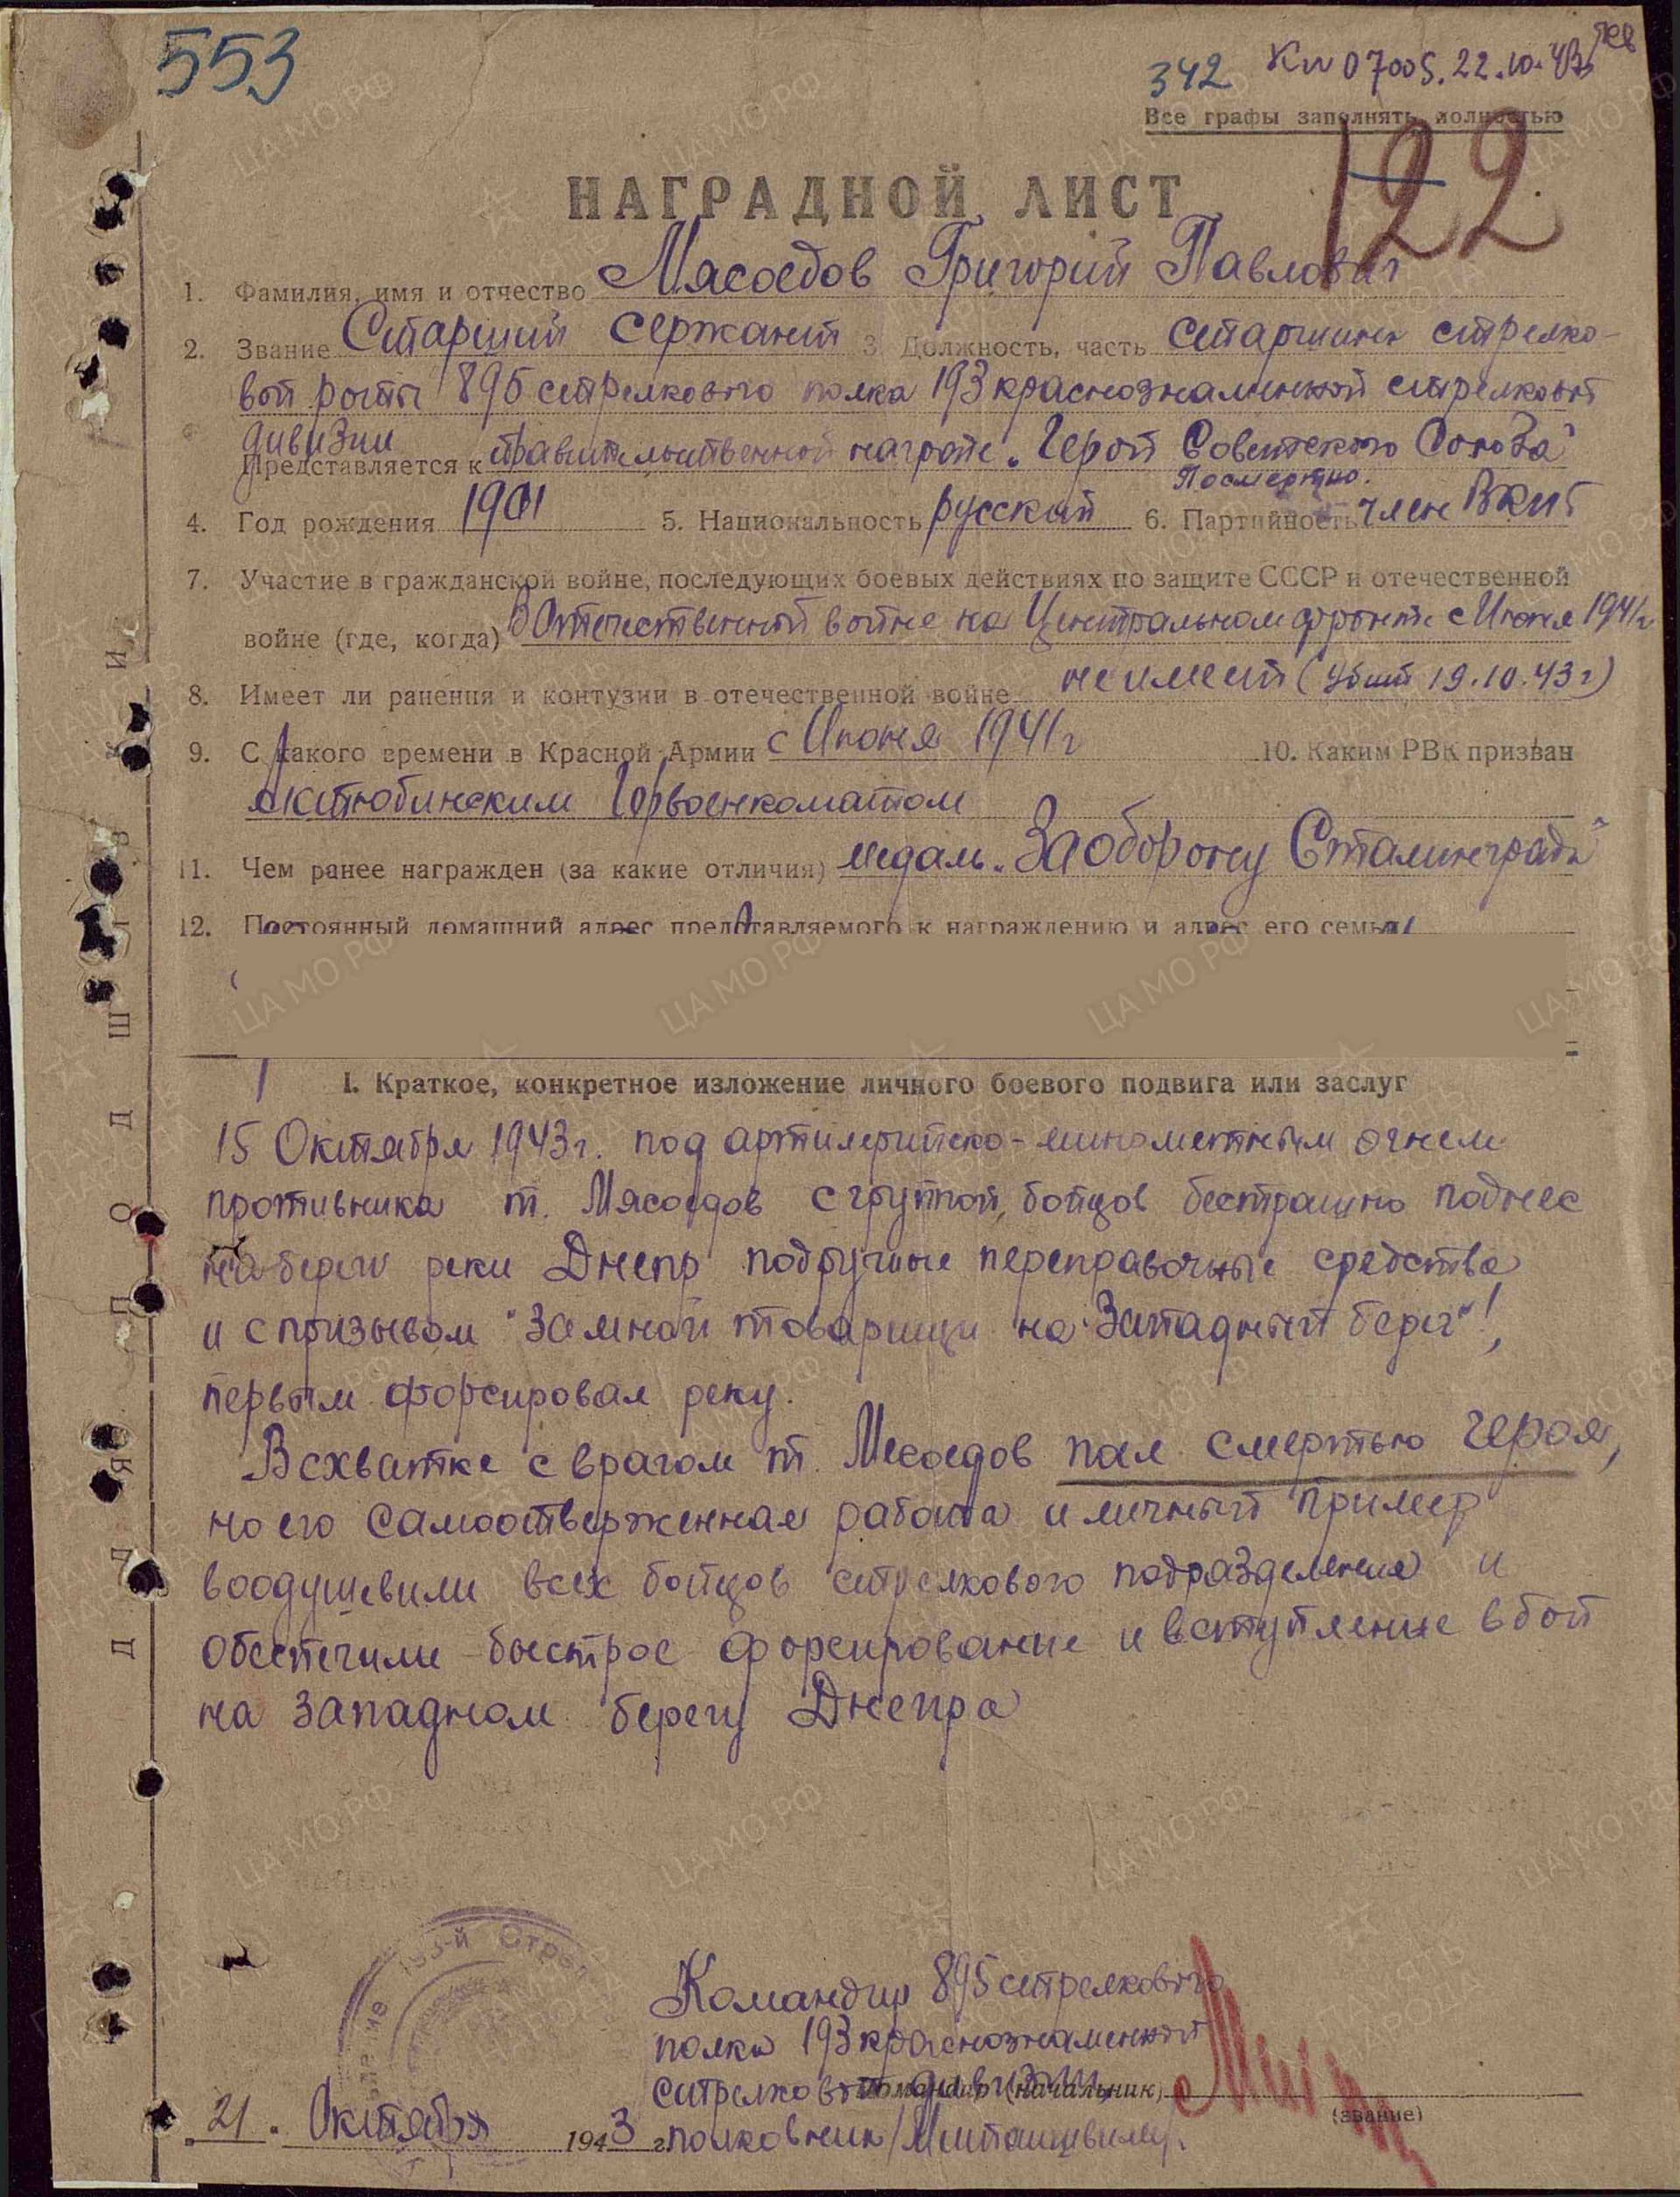 553
342 Кп 07005. 22.10.43
Все графы заполнять полностью
122
НАГРАДНОЙ ЛИСТ
1. Фамилия, имя и отчество Мясоедов Григорий Павлович
2. Звание Старший сержант 3. Должность, часть старшина стрелко-
вой роты 895 стрелкового полка 193 краснознаменной стрелковой
дивизии
Представляется к правительственной награде „Герой Советского Союза"
Посмертно.
4. Год рождения 1901 5. Национальность русский 6. Партийность член ВКПб
7. Участие в гражданской войне, последующих боевых действиях по защите СССР и отечественной
войне (где, когда) В Отечественной войне на Центральном фронте с Июня 1941г
8. Имеет ли ранения и контузии в отечественной войне не имеет (убит 19.10.43г)
9. С какого времени в Красной Армии с Июня 1941г 10. Каким РВК призван
Актюбинским Горвоенкоматом
11. Чем ранее награжден (за какие отличия) медаль „За оборону Сталинграда"
12. Постоянный домашний адрес представляемого к награждению и адрес его семьи
I. Краткое, конкретное изложение личного боевого подвига или заслуг
15 Октября 1943г. под артилерийско-минометным огнем
противника т. Мясоедов с групой бойцов бестрашно поднес
на берег реки Днепр подручные переправочные средства
и с призывом "За мной товарищи на Западный берег"!,
первым форсировал реку.
В схватке с врагом т. Месоедов пал смертью героя,
но его самоотверженная работа и личный пример
воодушевили всех бойцов стрелкового подразделения и
обеспечили быстрое форсирование и вступление в бой
на западном берегу Днепра
193-й Стрел
Командир 895 стрелкового
полка 193 краснознаменной
стрелковой дивизии
Командир (начальник)
(звание)
21. Октября 1943 г. полковник
Для подшивки
ЦА МО РФ
ПАМЯТЬ НАРОДА